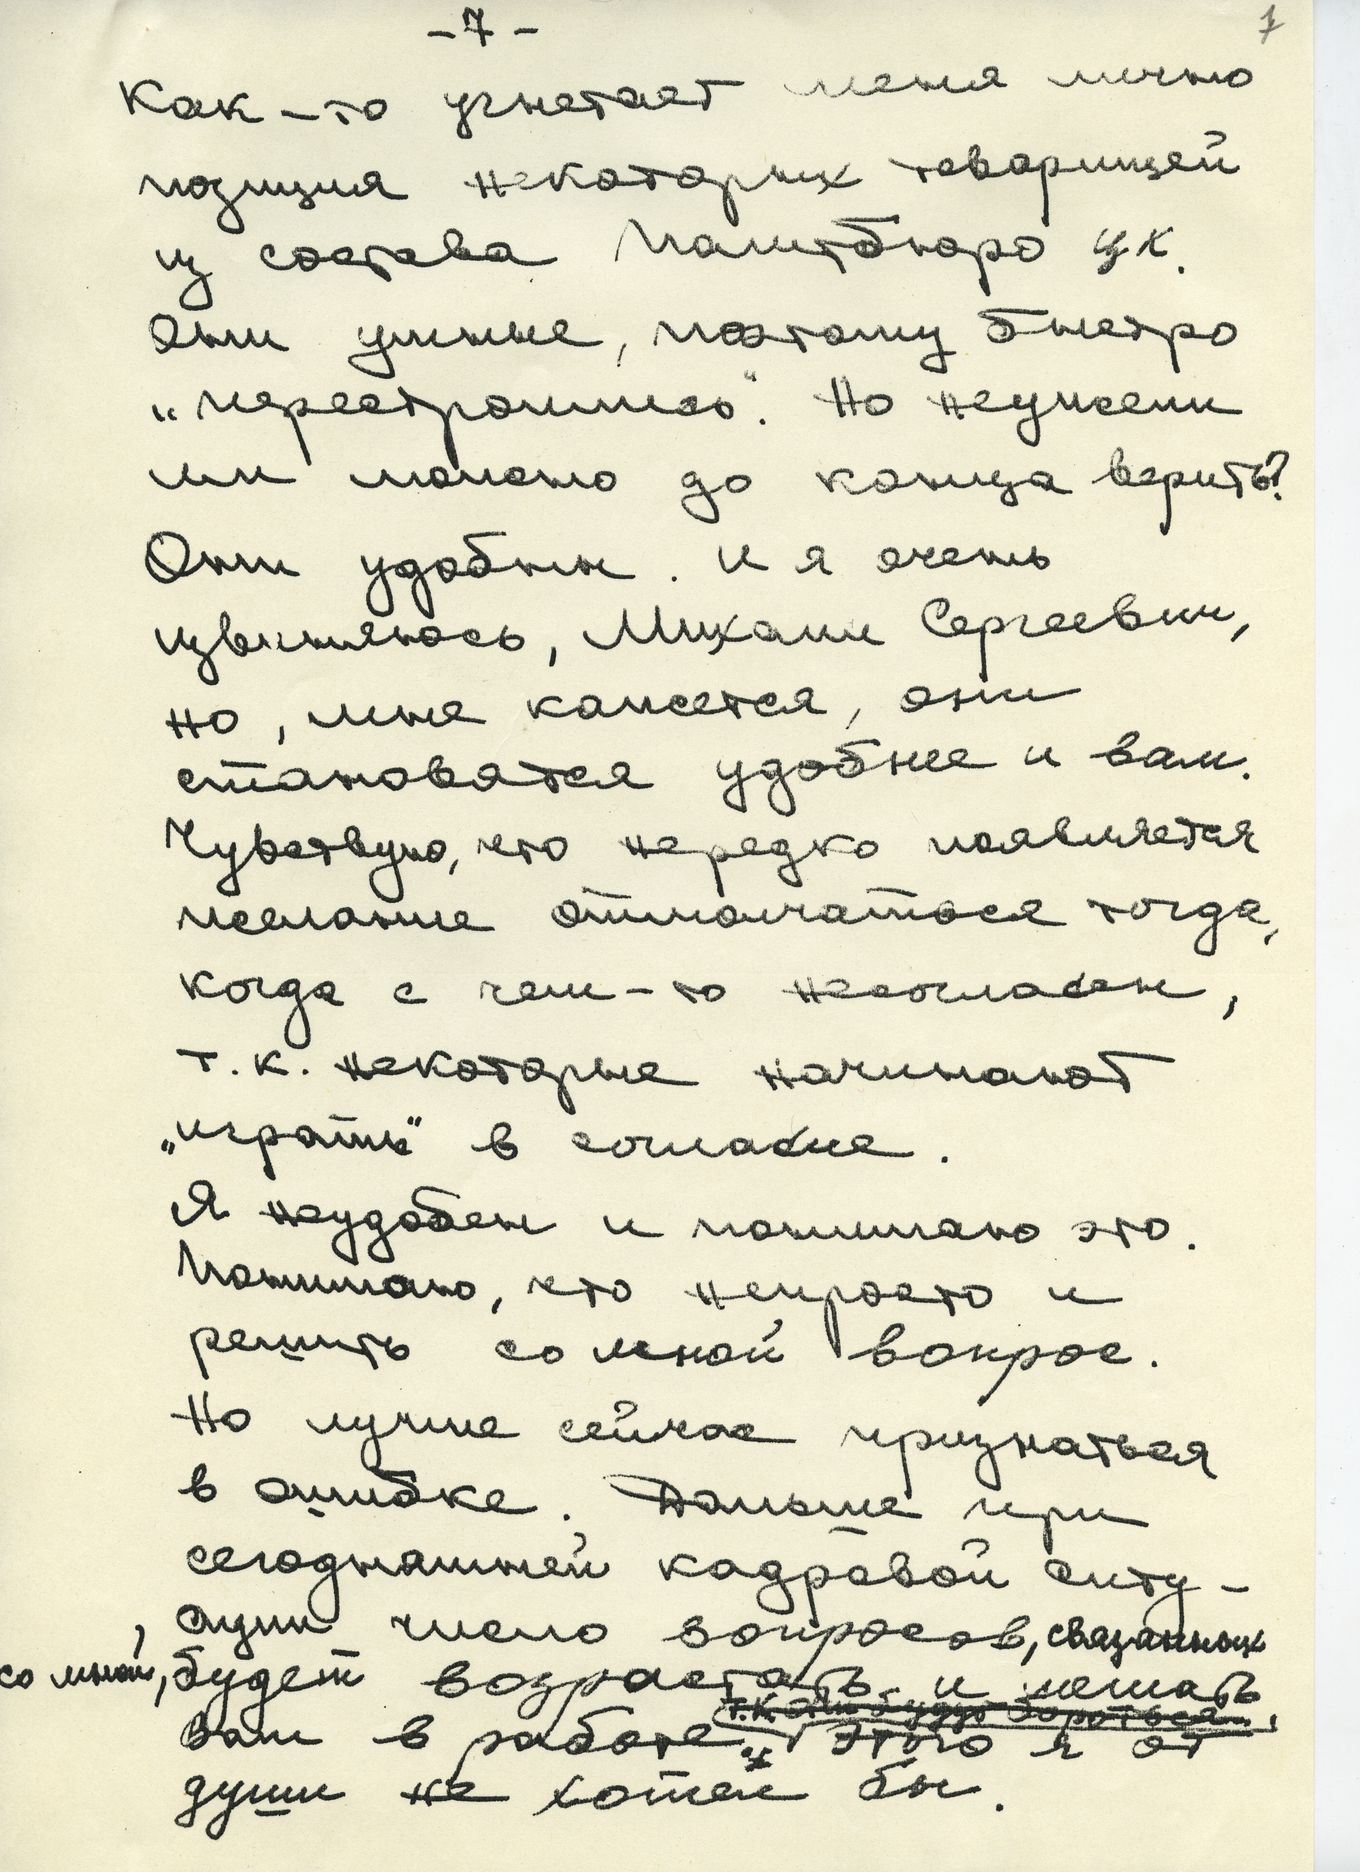 -7-
7
Как-то угнетает меня лично
позиция некоторых товарищей
из состава Политбюро ЦК.
Они умные, поэтому быстро
„перестроились“. Но неужели
им можно до конца верить?
Они удобны. И я очень
извиняюсь, Михаил Сергеевич,
но, мне кажется, они
становятся удобнее и вам.
Чувствую, что нередко появляется
желание отмолчаться тогда,
когда с чем-то несогласен,
т.к. некоторые начинают
„играть“ в согласие.
Я неудобен и понимаю это.
Понимаю, что непросто и
решить со мной вопрос.
Но лучше сейчас признаться
в ошибке. Дальше при
сегодняшней кадровой ситу-
ации число вопросов, связанных
со мной, будет возрастать и мешать
т.к. они будут бороться
вам в работе. Этого я от
души не хотел бы.